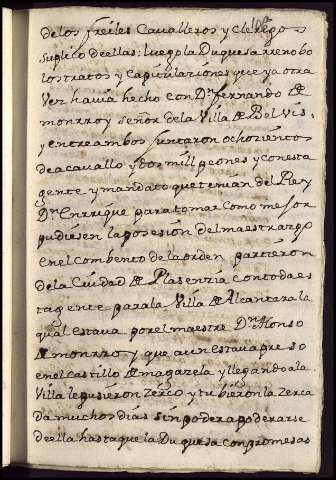 delos freiles Cavalleros y Clerigos
suplico deellas: luego la Duquesa rrenobo
los tratos y Capitulaziones que ya otra
vez havia hecho con Dn. fernando de
monrroy señor dela Villa de Belvis,
y entre ambos juntaron ochozientos
de a cavallo y dos mill peones y con esta
gente y mandato que tenian del Rey
Dn. Enrrique para tomar como mejor
pudiesen la posesion del maestrazgo
en el combento de la orden partieron
de la Ciudad de Plasenzia con toda es
ta gente para la Villa de Alcantara la
qual estava por el maestre Dn. Alonso
de monrroy que aun estava preso
en el Castillo de magazela y llegando a la
Villa le pusieron zerco y tubieron la zerca
da muchos dias sin poder apoderarse
de ella hasta que la Duquesa con promesas